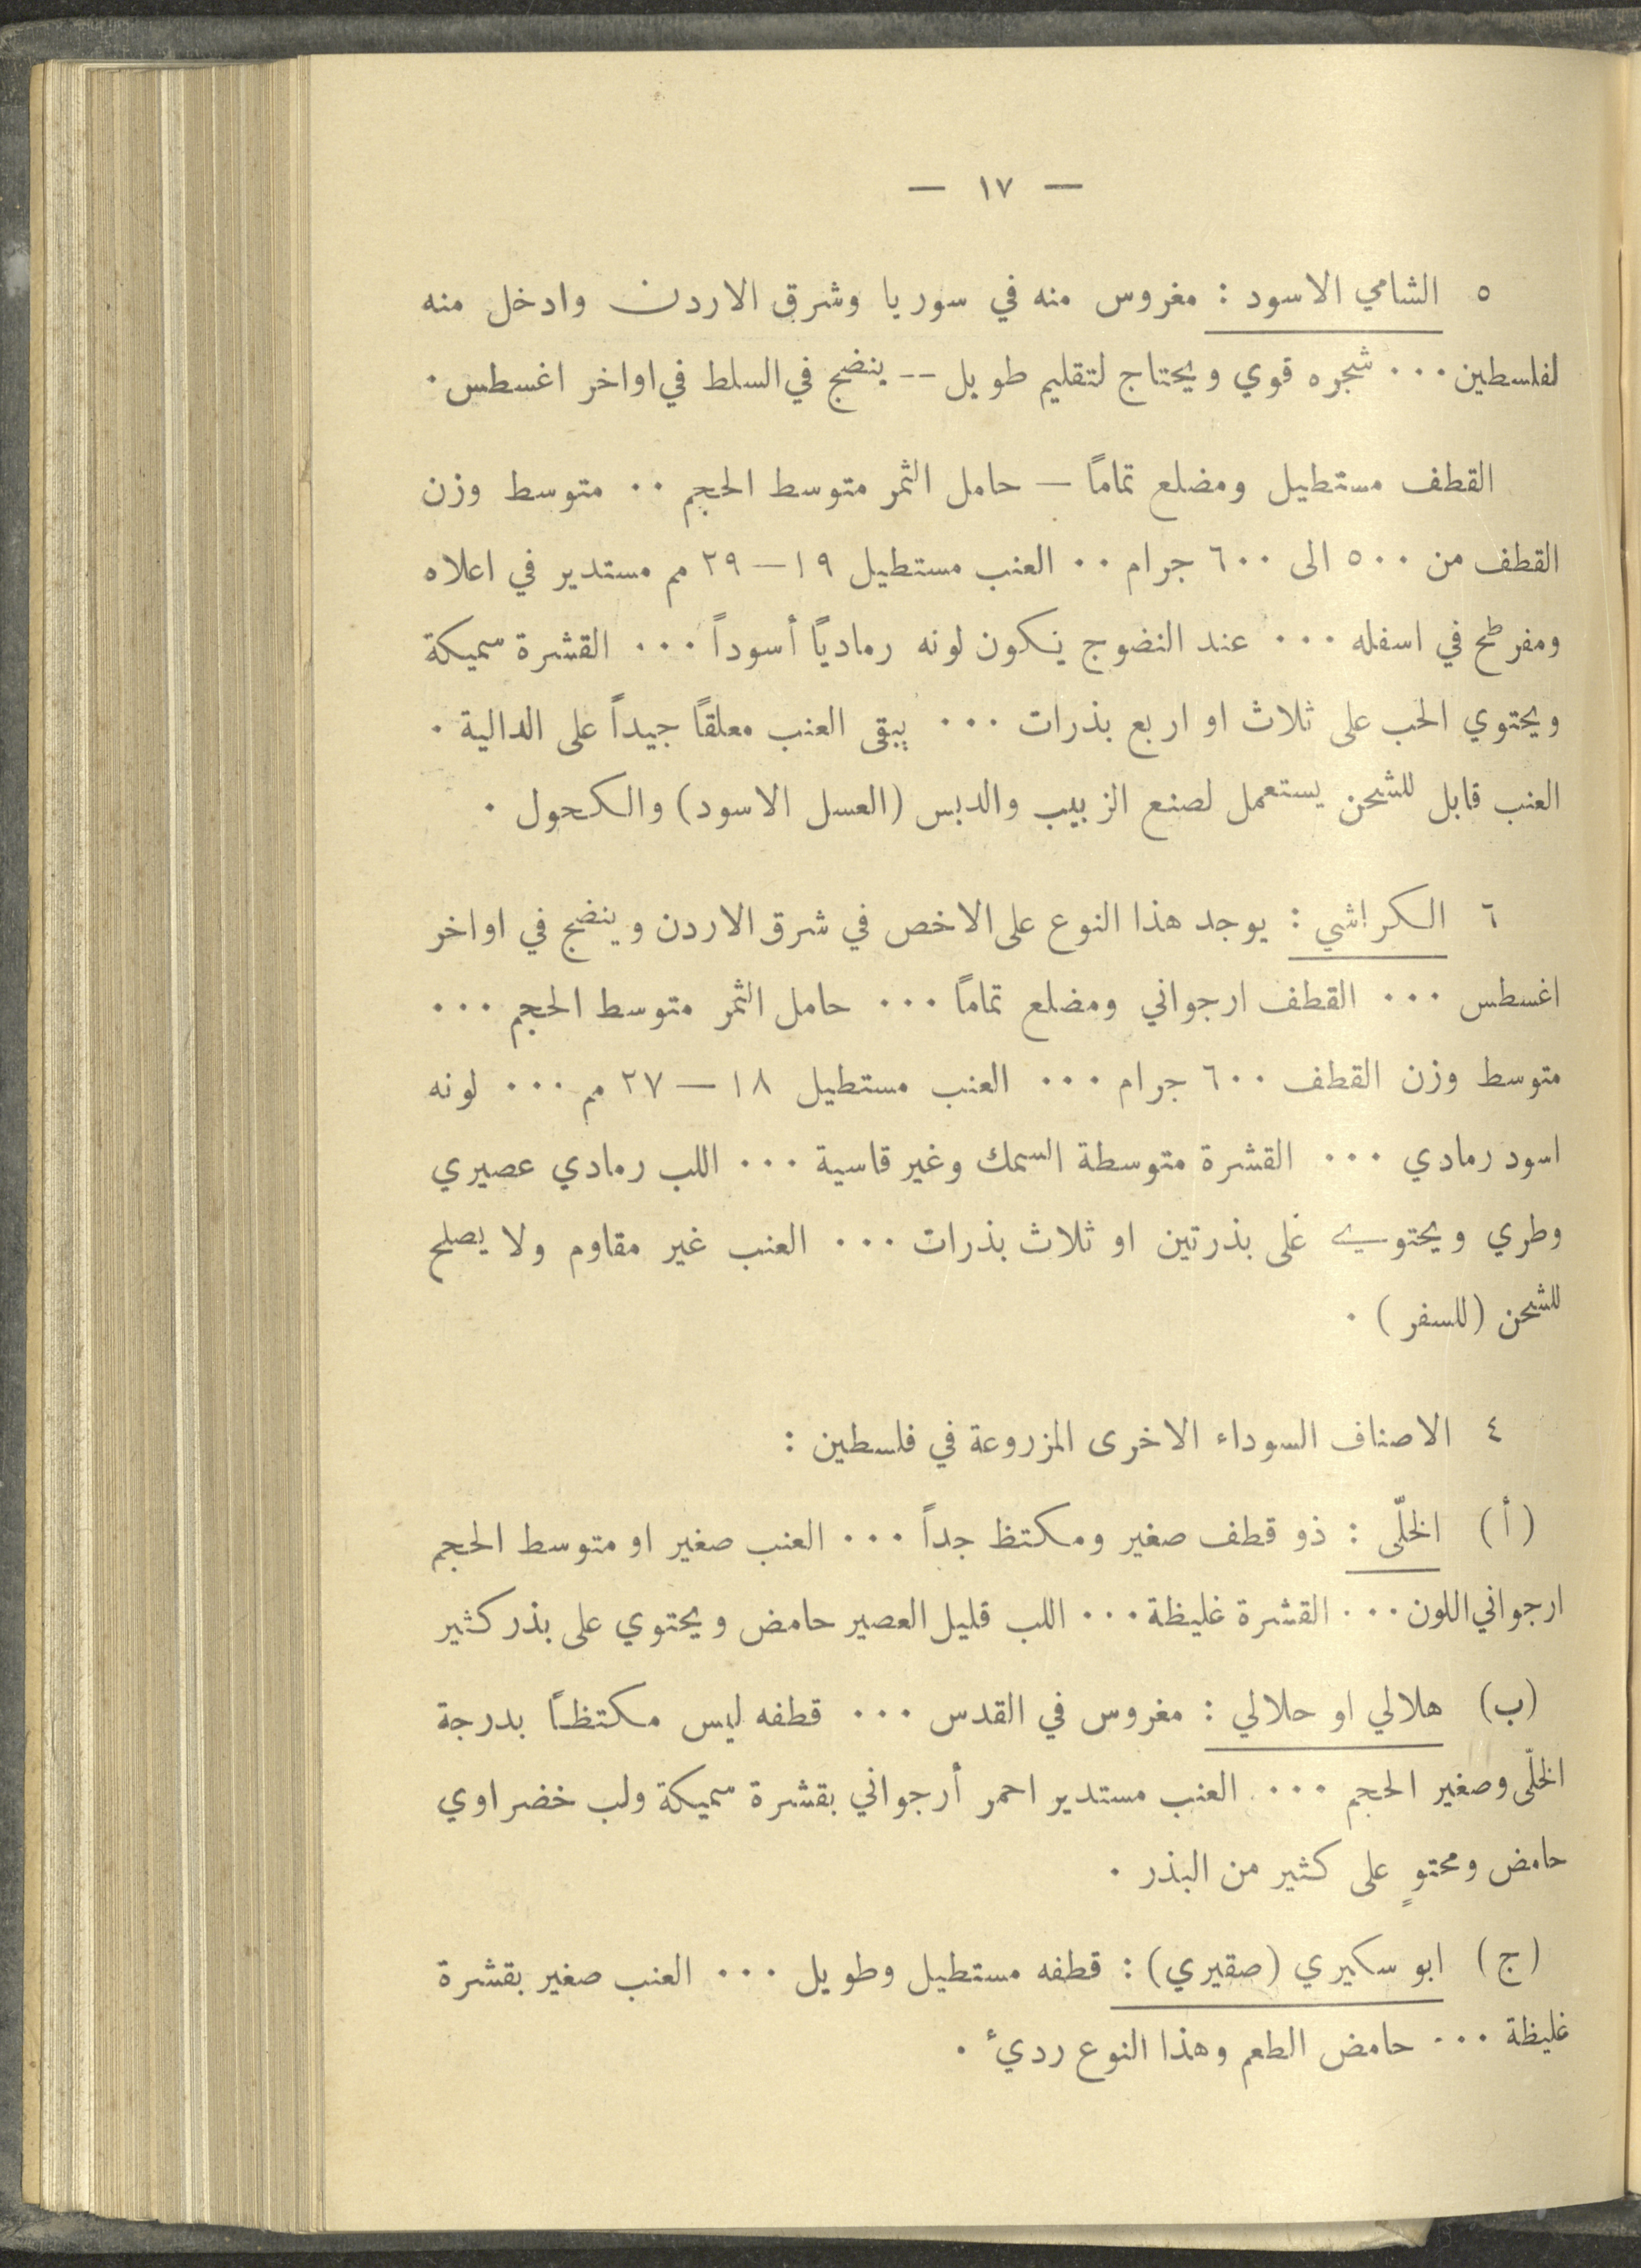 — ١٧ —
٥ الشامي الاسود : مغروس منه في سوريا وشرق الاردن وادخل منه
لفلسطين ٠٠٠ شجره قوي ويحتاج لتقليم طويل -- ينضج في السلط في اواخر اغسطس ٠
القطف مستطيل ومضلع تماماً — حامل الثمر متوسط الحجم ٠٠ متوسط وزن
القطف من ٥٠٠ الى ٦٠٠ جرام ٠٠ العنب مستطيل ١٩—٢٩ مم مستدير في اعلاه
ومفرطح في اسفله ٠٠٠ عند النضوج يكون لونه رمادياً أسوداً ٠٠٠ القشرة سميكة
ويحتوي الحب على ثلاث او اربع بذرات ٠٠٠ يبقى العنب معلقاً جيداً على الدالية ٠
العنب قابل للشحن يستعمل لصنع الزبيب والدبس (العسل الاسود) والكحول ٠
٦ الكراشي : يوجد هذا النوع على الاخص في شرق الاردن وينضج في اواخر
اغسطس ٠٠٠ القطف ارجواني ومضلع تماماً ٠٠٠ حامل الثمر متوسط الحجم ٠٠٠
متوسط وزن القطف ٦٠٠ جرام ٠٠٠ العنب مستطيل ١٨—٢٧ مم ٠٠٠ لونه
اسود رمادي ٠٠٠ القشرة متوسطة السمك وغير قاسية ٠٠٠ اللب رمادي عصيري
وطري ويحتوي على بذرتين او ثلاث بذرات ٠٠٠ العنب غير مقاوم ولا يصلح
للشحن (للسفر) ٠
٤ الاصناف السوداء الاخرى المزروعة في فلسطين :
(أ) الخلّى : ذو قطف صغير ومكتظ جداً ٠٠٠ العنب صغير او متوسط الحجم
ارجواني اللون ٠٠٠ القشرة غليظة ٠٠٠ اللب قليل العصير حامض ويحتوي على بذر كثير
(ب) هلالي او حلالي : مغروس في القدس ٠٠٠ قطفه ليس مكتظاً بدرجة
الخلّى وصغير الحجم ٠٠٠ العنب مستدير احمر أرجواني بقشرة سميكة ولب خضراوي
حامض ومحتوٍ على كثير من البذر ٠
(ج) ابو سكيري (صقيري) : قطفه مستطيل وطويل ٠٠٠ العنب صغير بقشرة
غليظة ٠٠٠ حامض الطعم وهذا النوع رديء ٠